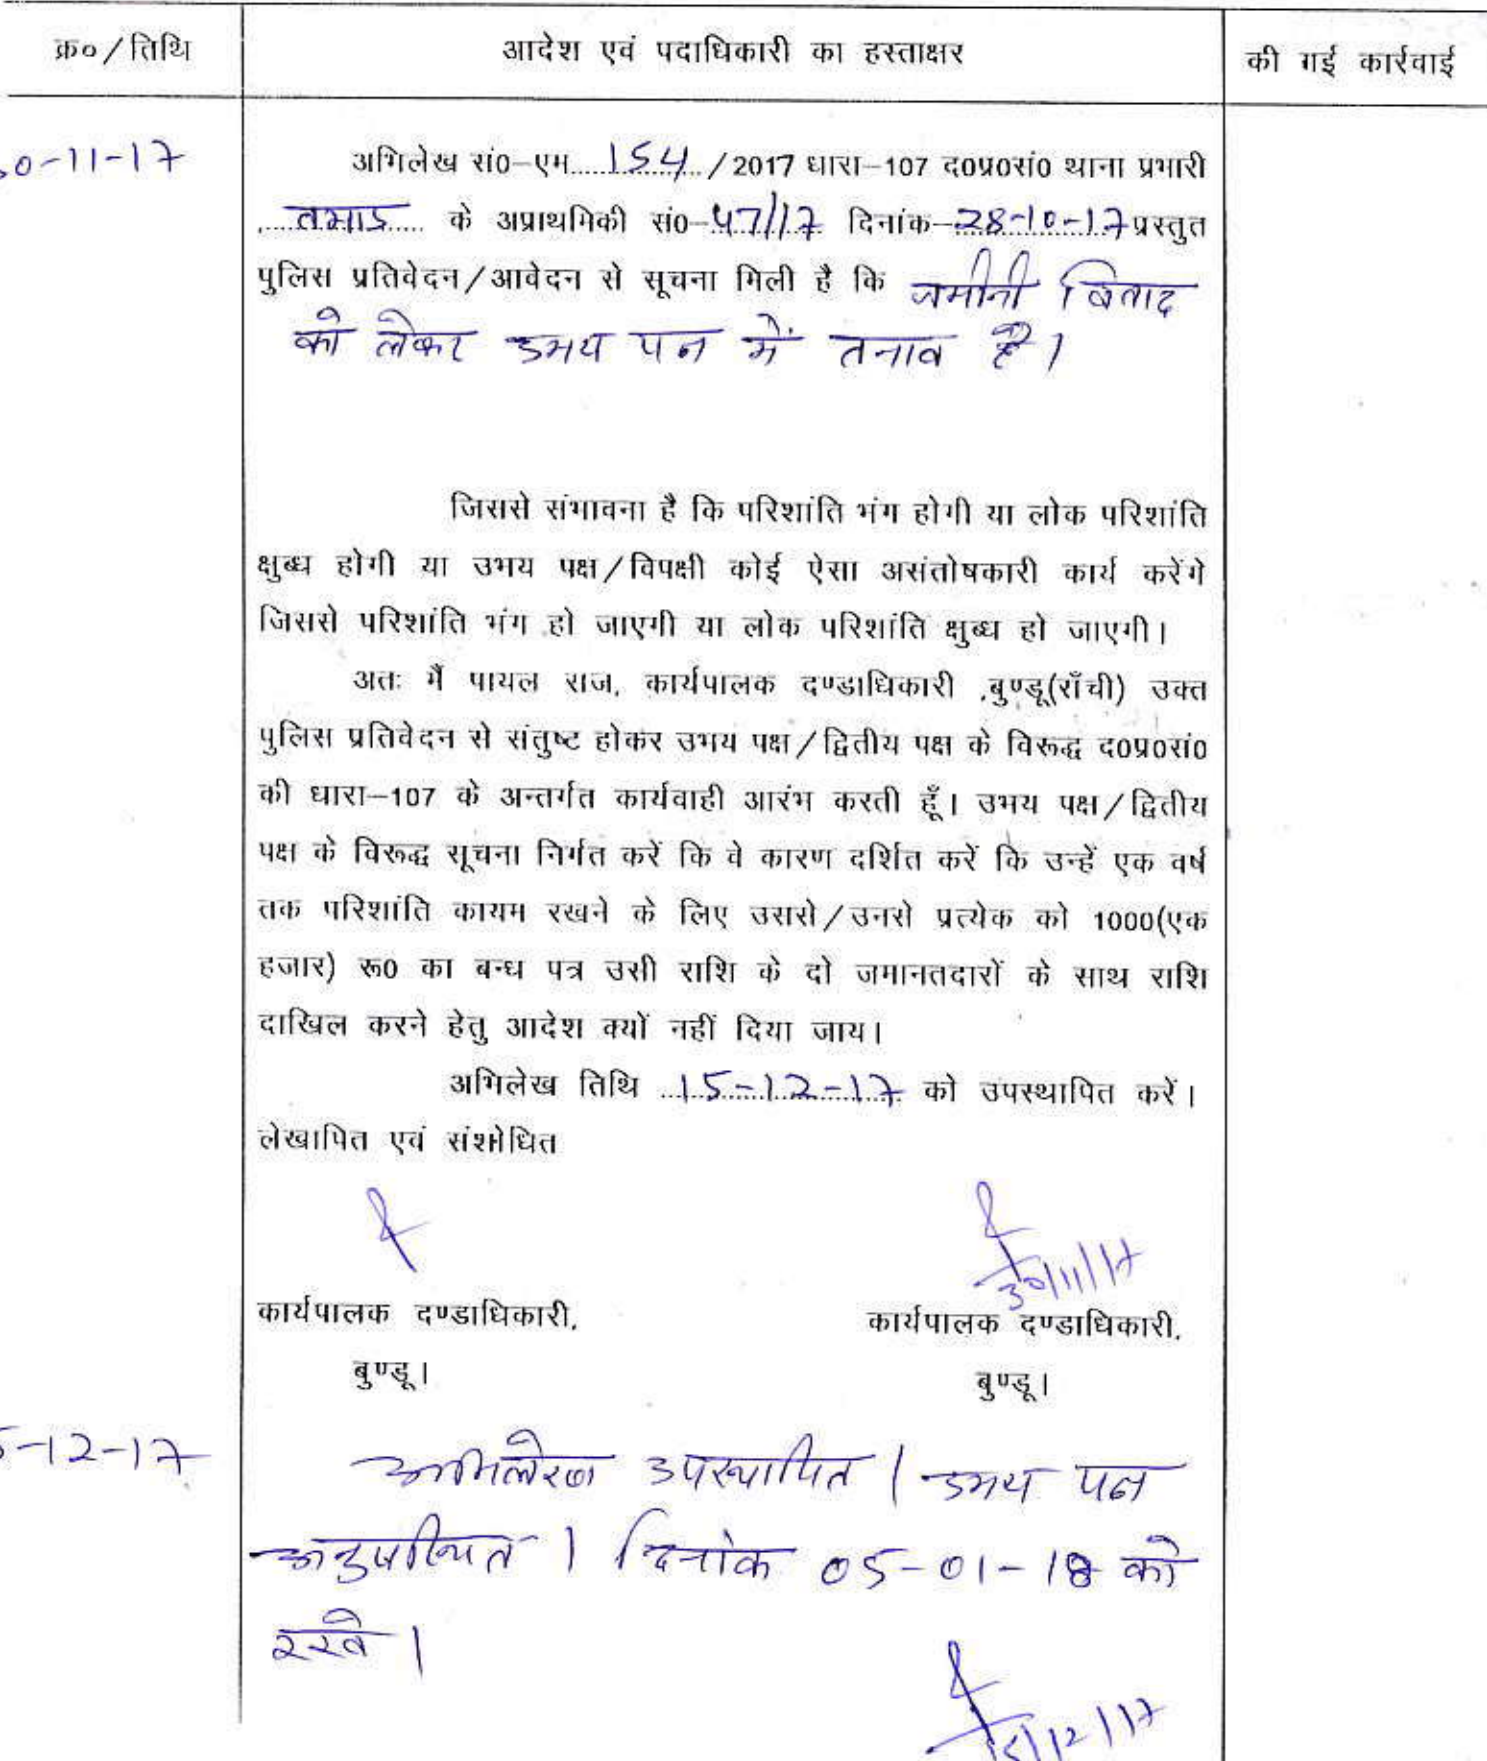 क्र०/तिथि
आदेश एवं पदाधिकारी का हस्ताक्षर
की गई कार्रवाई
0-11-17
अभिलेख सं०-एम.....154../2017 धारा-107 द०प्र०सं० थाना प्रभारी
तमाड़ के अप्राथमिकी सं०-47/17 दिनांक-28-10-17 प्रस्तुत
पुलिस प्रतिवेदन/आवेदन से सूचना मिली है कि जमीनी विवाद
को लेकर उभय पक्ष में तनाव है।
जिससे संभावना है कि परिशांति भंग होगी या लोक परिशांति
क्षुब्ध होगी या उभय पक्ष/विपक्षी कोई ऐसा असंतोषकारी कार्य करेंगे
जिससे परिशांति भंग हो जाएगी या लोक परिशांति क्षुब्ध हो जाएगी।
अतः मैं पायल राज, कार्यपालक दण्डाधिकारी ,बुण्डू(राँची) उक्त
पुलिस प्रतिवेदन से संतुष्ट होकर उभय पक्ष/द्वितीय पक्ष के विरूद्ध द०प्र०सं०
की धारा-107 के अन्तर्गत कार्यवाही आरंभ करती हूँ। उभय पक्ष/द्वितीय
पक्ष के विरूद्ध सूचना निर्गत करें कि वे कारण दर्शित करें कि उन्हें एक वर्ष
तक परिशांति कायम रखने के लिए उससे/उनसे प्रत्येक को 1000(एक
हजार) रू० का बन्ध पत्र उसी राशि के दो जमानतदारों के साथ राशि
दाखिल करने हेतु आदेश क्यों नहीं दिया जाय।
अभिलेख तिथि ..15-12-17 को उपस्थापित करें।
लेखापित एवं संशोधित
30/11/17
कार्यपालक दण्डाधिकारी,
कार्यपालक दण्डाधिकारी,
बुण्डू।
बुण्डू।
5-12-17
अभिलेख उपस्थापित। उभय पक्ष
अनुपस्थित। दिनांक 05-01-18 को
रखें।
15/12/17